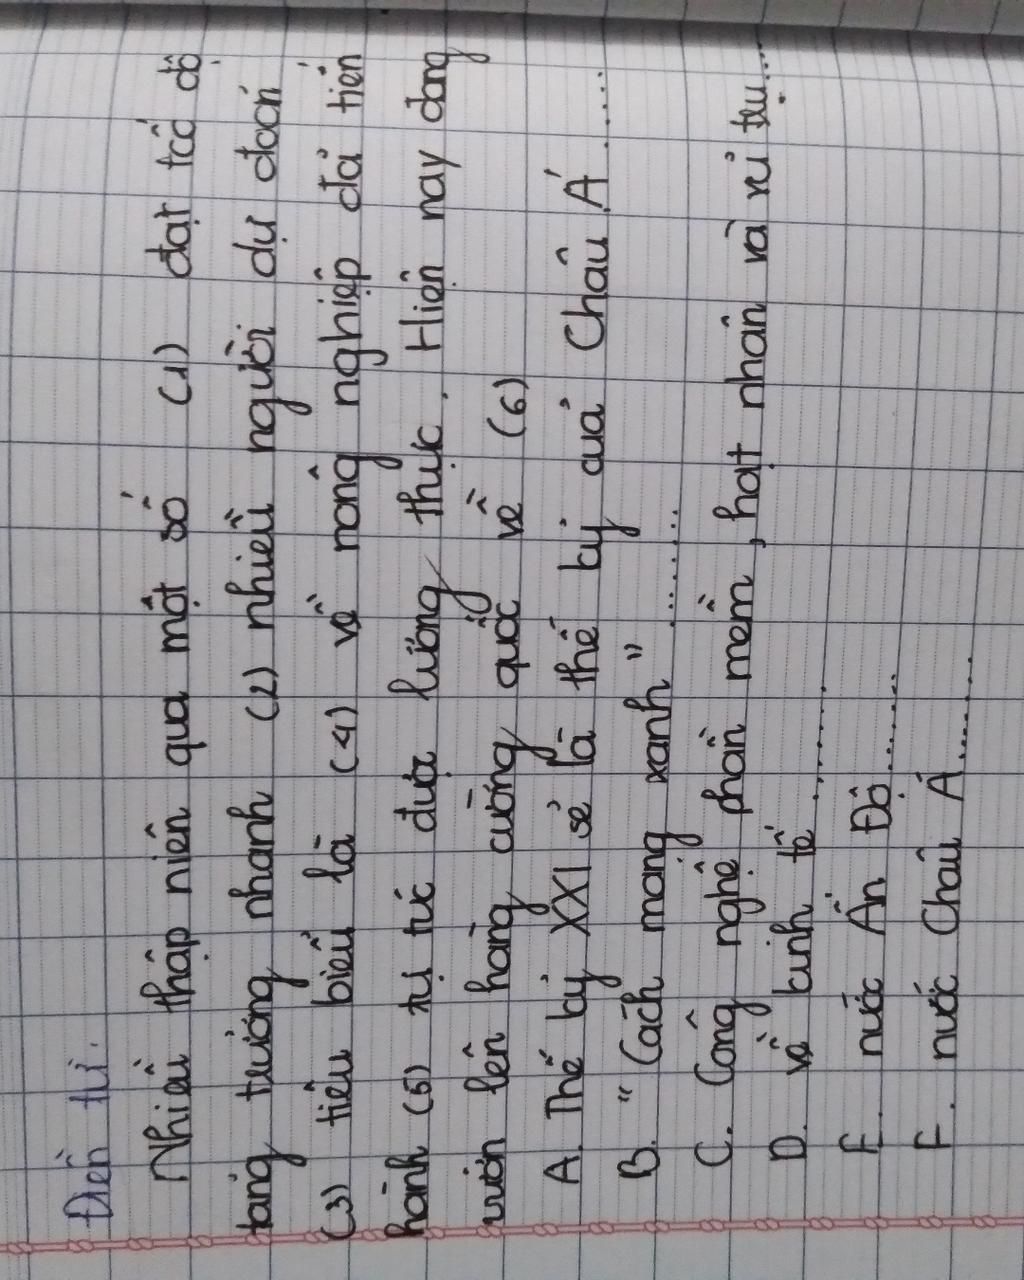 Điền từ.
Nhiều thập niên qua một số (1) đạt tốc độ
tăng trưởng nhanh (2) nhiều người dự đoán
(3) tiêu biểu là (4) về nông nghiệp đã tiến
hành (5) tự túc được lương thực. Hiện nay đang
vươn lên hàng cường quốc về (6)
A. Thế kỷ XXI sẽ là thế kỷ của Châu Á......
B. " Cách mạng xanh "........
C. Công nghệ phần mềm, hạt nhân và vũ trụ....
D. về kinh tế.........
E. nước Ấn Độ.........
F. nước Châu Á.........